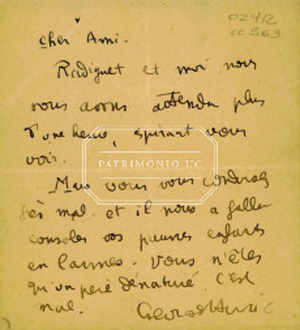 024/2
cc 563
Cher Ami.
Radiguet et moi nous
vous avons attendu plus
d'une heure, espérant vous
voir.
PATRIMONIO UC
Mais vous vous conduisez
très mal. et il nous a fallu
consoler vos pauvres enfants
en larmes. Vous n'êtes
qu'un père dénaturé. c'est
mal.
Georges Auric